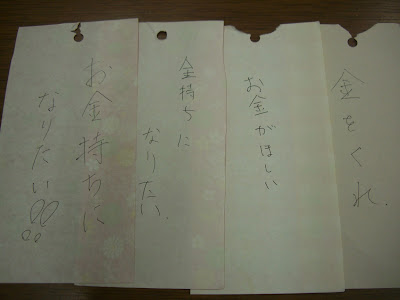 金をくれ.
お金がほしい
金持ちに
なりたい.
お金持ちに
なりたい!!